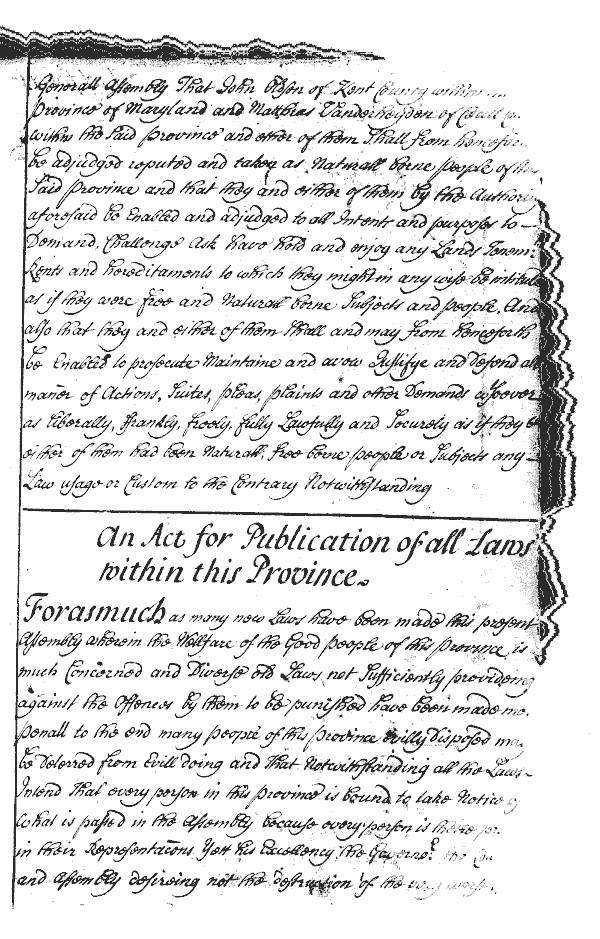 Generall Assembly That John Olson of Kent County within
Province of Maryland and Matthias Vanderheyden of Cecill
within the said province and either of them Shall from hencefor
be adjudged reputed and taken as Naturall borne people of this
Said province and that they and either of them by the Authori
aforesaid be Enabled and adjudged to all Intents and purposes to —
Demand, Challenge Ask have hold and enjoy any Lands Tenem
Rents and hereditaments to which they might in any wise be intituled
as if they were free and Naturall borne Subjects and people, And
also that they and either of them Shall and may from henceforth
be Enabled to prosecute Maintaine and avow Justifye and defend all
maner of Actions, Suites, pleas, plaints and other Demands wsoever
as liberally, frankly, freely, fully Lawfully and Securely as if they
either of them had been Naturall, free borne people or Subjects any —
Law usage or Custom to the Contrary Notwithstanding
An Act for Publication of all Laws
within this Province.
Forasmuch as many new Laws have been made this present
Assembly wherein the Wellfare of the Good people of this province is
much Concerned and Diverse old Laws not Sufficiently provideing
against the Offences by them to be punished have been made
penall to the end many people of this province evilly Disposed
be Deterred from Evill doing and That Notwithstanding all the Laws
Intend That every person in this province is bound to take Notice
what is passed in the Assembly because every person is there
in their Representacons Yett his Excellency the Governor the
and Assembly desireing not the destruction of the very